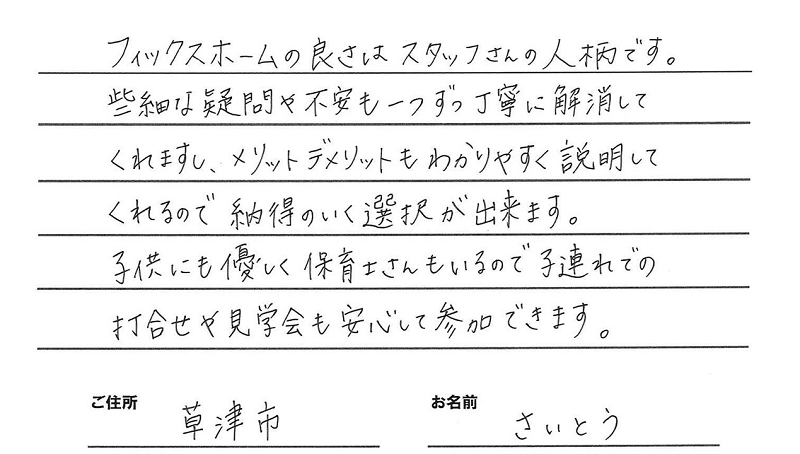 フィックスホームの良さは スタッフさんの人柄です。
些細な疑問や不安も一つずつ丁寧に解消して
くれますし、メリットデメリットもわかりやすく説明して
くれるので納得のいく選択が出来ます。
子供にも優しく保育士さんもいるので子連れでの
打合せや見学会も安心して参加できます。
ご住所 草津市 お名前 さいとう